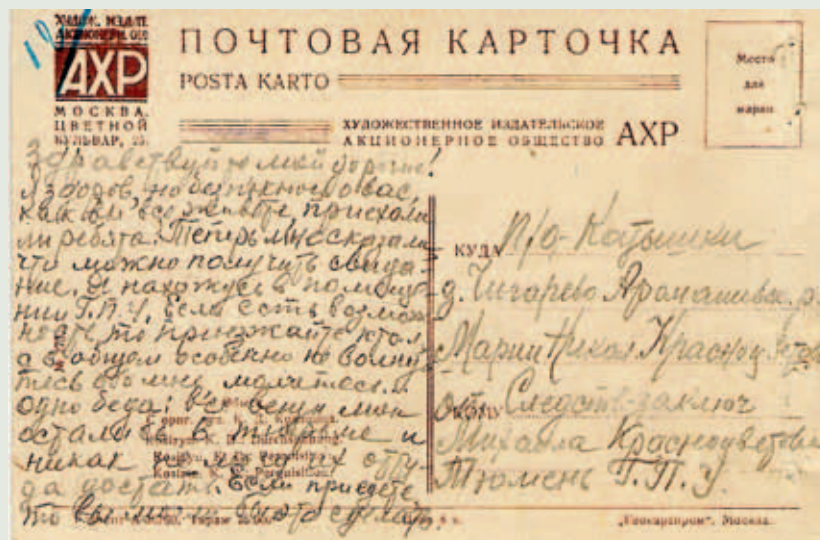 ХУДОЖ. ИЗДАТ.
АКЦИОНЕРН. О-ВО
АХР
МОСКВА,
ЦВЕТНОЙ
БУЛЬВАР, 25.
ПОЧТОВАЯ КАРТОЧКА
POSTA KARTO
ХУДОЖЕСТВЕННОЕ ИЗДАТЕЛЬСКОЕ
АКЦИОНЕРНОЕ ОБЩЕСТВО АХР
Место
для
марки
Здравствуйте мои дорогие!
Я здоров, но о вас,
как вы все живете, приехали
ли ребята. Теперь мне сказали
что можно получить свида-
ние. Я нахожусь в помеще-
нии Г.П.У. Если есть возмож-
ность, то приезжайте
а в общем особенно не волну-
тесь обо мне, молитесь.
одно беда: все вещи мои
остались в тюрьме и
никак не могу их отту-
да достать. Если приедете
то вы можете было сделать.
КУДА п/о Катышки
д. Чигарево Аромашевск. р.
Марии Никол. Красноцветов
КОМУ
от Следств-заключ
Михаила Красноцветова
Тюмень Г.П.У.
„Госкартпром“. Москва.